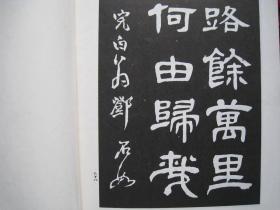 路餘萬里
何由歸哉
完白翁鄧石如